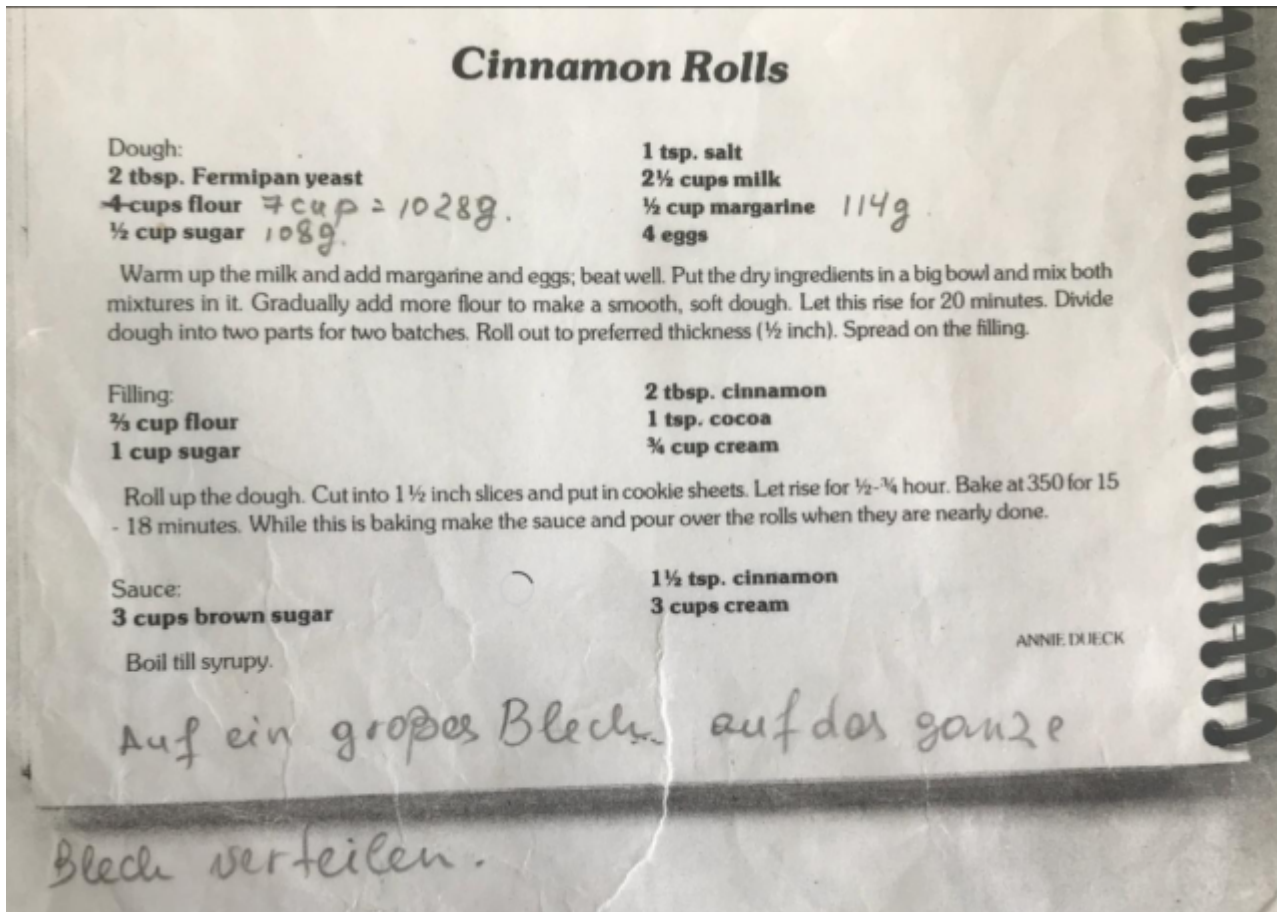 Cinnamon Rolls
Dough:
2 tbsp. Fermipan yeast
4 cups flour 7 cup = 1028g.
½ cup sugar 108g.
1 tsp. salt
2½ cups milk
½ cup margarine 114g
4 eggs
Warm up the milk and add margarine and eggs; beat well. Put the dry ingredients in a big bowl and mix both
mixtures in it. Gradually add more flour to make a smooth, soft dough. Let this rise for 20 minutes. Divide
dough into two parts for two batches. Roll out to preferred thickness (½ inch). Spread on the filling.
Filling:
⅔ cup flour
1 cup sugar
2 tbsp. cinnamon
1 tsp. cocoa
¾ cup cream
Roll up the dough. Cut into 1½ inch slices and put in cookie sheets. Let rise for ½-¾ hour. Bake at 350 for 15
- 18 minutes. While this is baking make the sauce and pour over the rolls when they are nearly done.
Sauce:
3 cups brown sugar
1½ tsp. cinnamon
3 cups cream
ANNIE DUECK
Boil till syrupy.
Auf ein großes Blech auf das ganze
Blech verteilen.